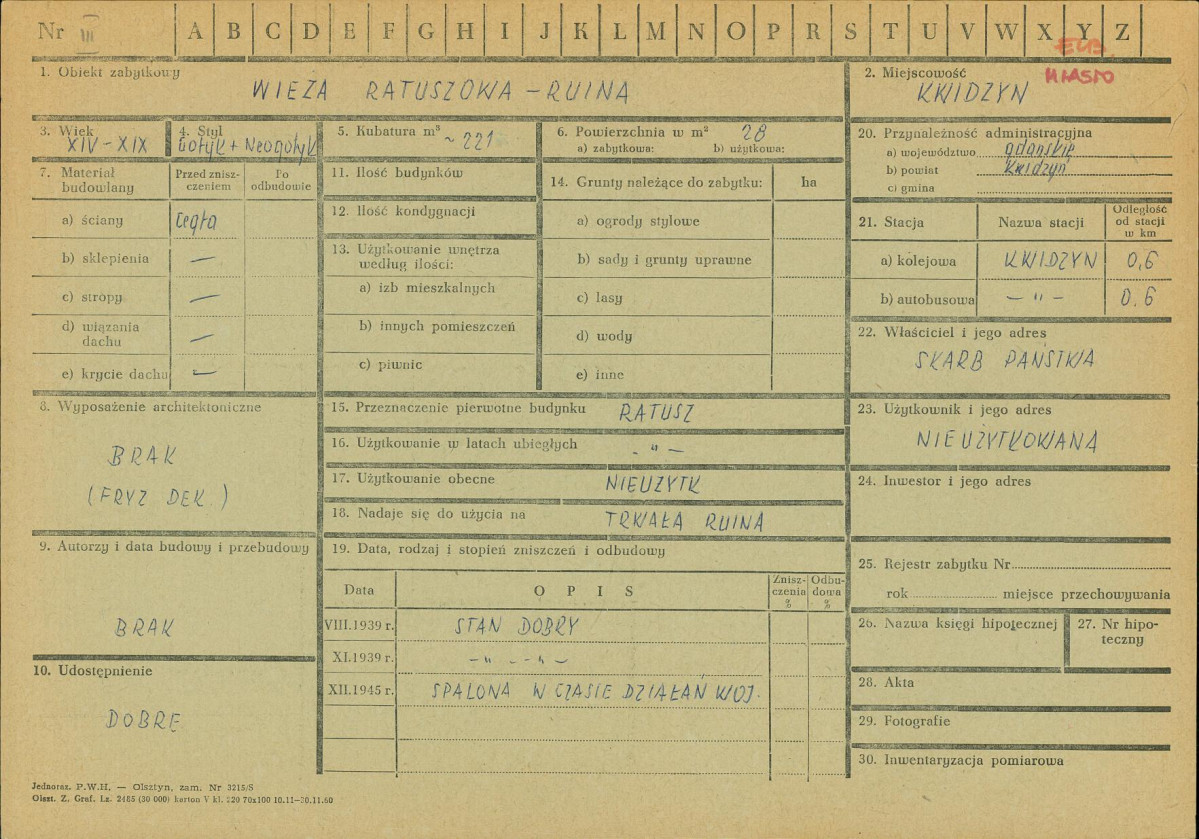 Nr III A B C D E F G H I J K L M N O P R S T U V W X Y Z
MIASTO
1. Obiekt zabytkowy
WIEŻA RATUSZOWA – RUINA
2. Miejscowość
KWIDZYN
3. Wiek
XIV – XIX
4. Styl
Gotyk + Neogotyk
5. Kubatura m³
~ 221
6. Powierzchnia w m² 28
a) zabytkowa: b) użytkowa:
20. Przynależność administracyjna
a) województwo gdańskie
b) powiat Kwidzyn
c) gmina
7. Materiał budowlany
Przed zniszczeniem
Po odbudowie
a) ściany cegła
b) sklepienia —
c) stropy —
d) wiązania dachu —
e) krycie dachu —
11. Ilość budynków
12. Ilość kondygnacji
13. Użytkowanie wnętrza
według ilości:
a) izb mieszkalnych
b) innych pomieszczeń
c) piwnic
14. Grunty należące do zabytku: ha
a) ogrody stylowe
b) sady i grunty uprawne
c) lasy
d) wody
e) inne
21. Stacja Nazwa stacji Odległość od stacji w km
a) kolejowa KWIDZYN 0,6
b) autobusowa — " — 0.6
22. Właściciel i jego adres
SKARB PAŃSTWA
8. Wyposażenie architektoniczne
BRAK
(FRYZ DEK.)
15. Przeznaczenie pierwotne budynku RATUSZ
16. Użytkowanie w latach ubiegłych - " —
17. Użytkowanie obecne NIEUŻYTK
18. Nadaje się do użycia na TRWAŁA RUINA
23. Użytkownik i jego adres
NIEUŻYTKOWANA
24. Inwestor i jego adres
9. Autorzy i data budowy i przebudowy
BRAK
10. Udostępnienie
DOBRE
19. Data, rodzaj i stopień zniszczeń i odbudowy
Data O P I S Zniszczenia % Odbudowa %
VIII.1939 r. STAN DOBRY
XI.1939 r. — " — - " —
XII.1945 r. SPALONA W CZASIE DZIAŁAŃ WOJ.
25. Rejestr zabytku Nr
rok miejsce przechowywania
26. Nazwa księgi hipotecznej
27. Nr hipoteczny
28. Akta
29. Fotografie
30. Inwentaryzacja pomiarowa
Jednoraz. P.W.H. — Olsztyn, zam. Nr 3215/S
Olszt. Z. Graf. Lz. 2485 (30 000) karton V kl. 220 70x100 10.11—20.11.60